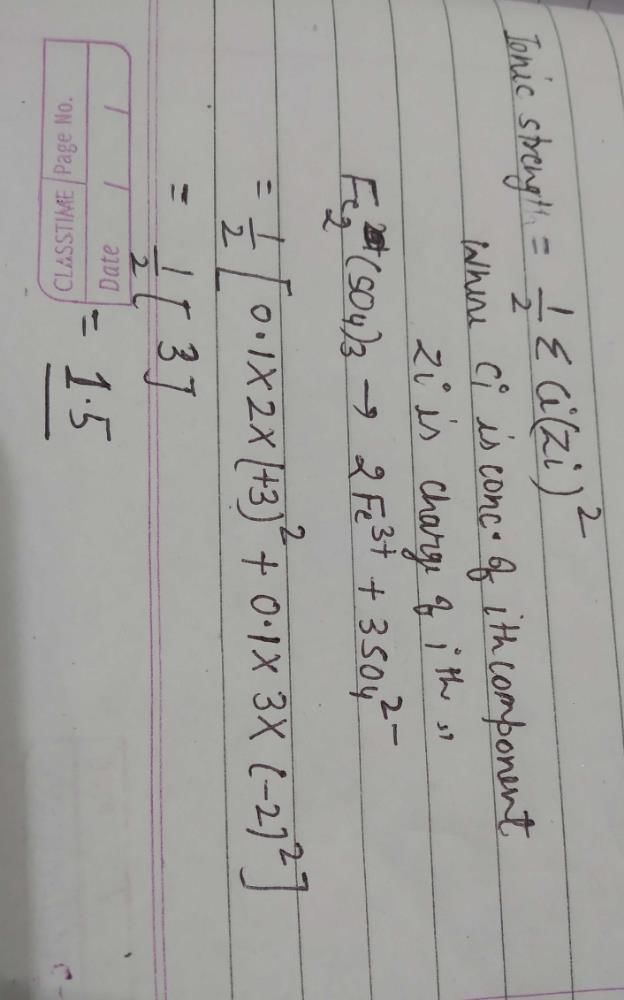 Ionic strength = 1/2 Σ Ci(Zi)²
Where Ci is conc. of ith component
Zi is charge of ith "
Fe₂(SO₄)₃ → 2Fe³⁺ + 3SO₄²⁻
= 1/2 [0.1X2X(+3)² + 0.1X3X(-2)²]
= 1/2 [3]
= 1.5
CLASSTIME Page No.
Date / /